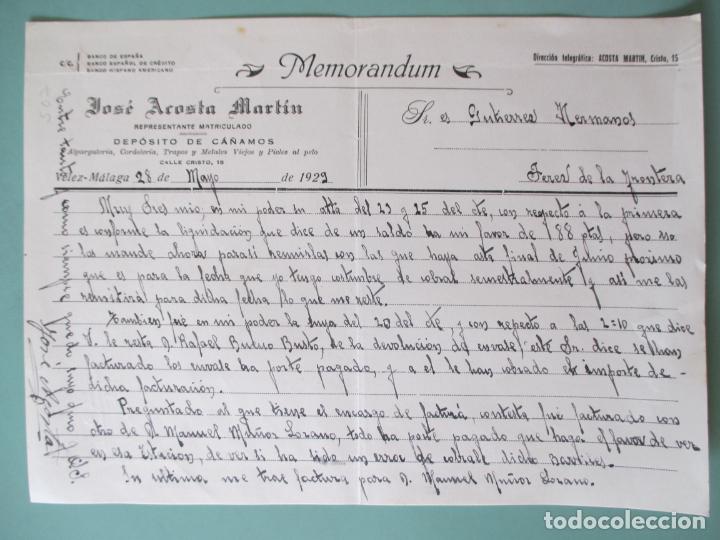 c/c. BANCO DE ESPAÑA
BANCO ESPAÑOL DE CRÉDITO
BANCO HISPANO AMERICANO
Memorandum
Dirección telegráfica: ACOSTA MARTIN, Cristo, 15
José Acosta Martín
REPRESENTANTE MATRICULADO
DEPÓSITO DE CÁÑAMOS
Alpargatería, Cordelería, Trapos y Metales Viejos y Pieles al pelo
CALLE CRISTO, 15
Vélez-Málaga 28 de Mayo de 1923
Sr. es Gutierrez Hermanos
Jerez de la Frontera
Muy Sres mio, en mi poder su atta del 23 y 25 del cte, con respecto á la primera
es conforme la liquidación que dice de un saldo ha mi favor de 188 ptas, pero no
los mande ahora para remisirlas con las que haya asta final de Junio proximo
que es para la fecha que yo tengo costumbre de cobrar semestralmente y asi me las
remitirá para dicha fecha lo que me reste.
Tambien fué en mi poder la suya del 20 del cte, y con repecto a las 2=10 que dice
V. le resta D. Rafael Busto, de la devolución de envase, este Sr. dice se han
facturado los envase ha porte pagado, y a el le han cobrado el importe de
dicha facturación.
Preguntado al que tiene el encargo de facturá, contesta fué facturado con
otro de D. Manuel Muñor Lozano, todo ha porte pagado que hagar el favor de ver
en esa Estación, de ver si ha sido un error de cobrale dicho
In ultima me trae factura para D. Manuel Muñor Lozano.
como siempre quedo suyo
José Acosta
todocoleccion
todocoleccion.net